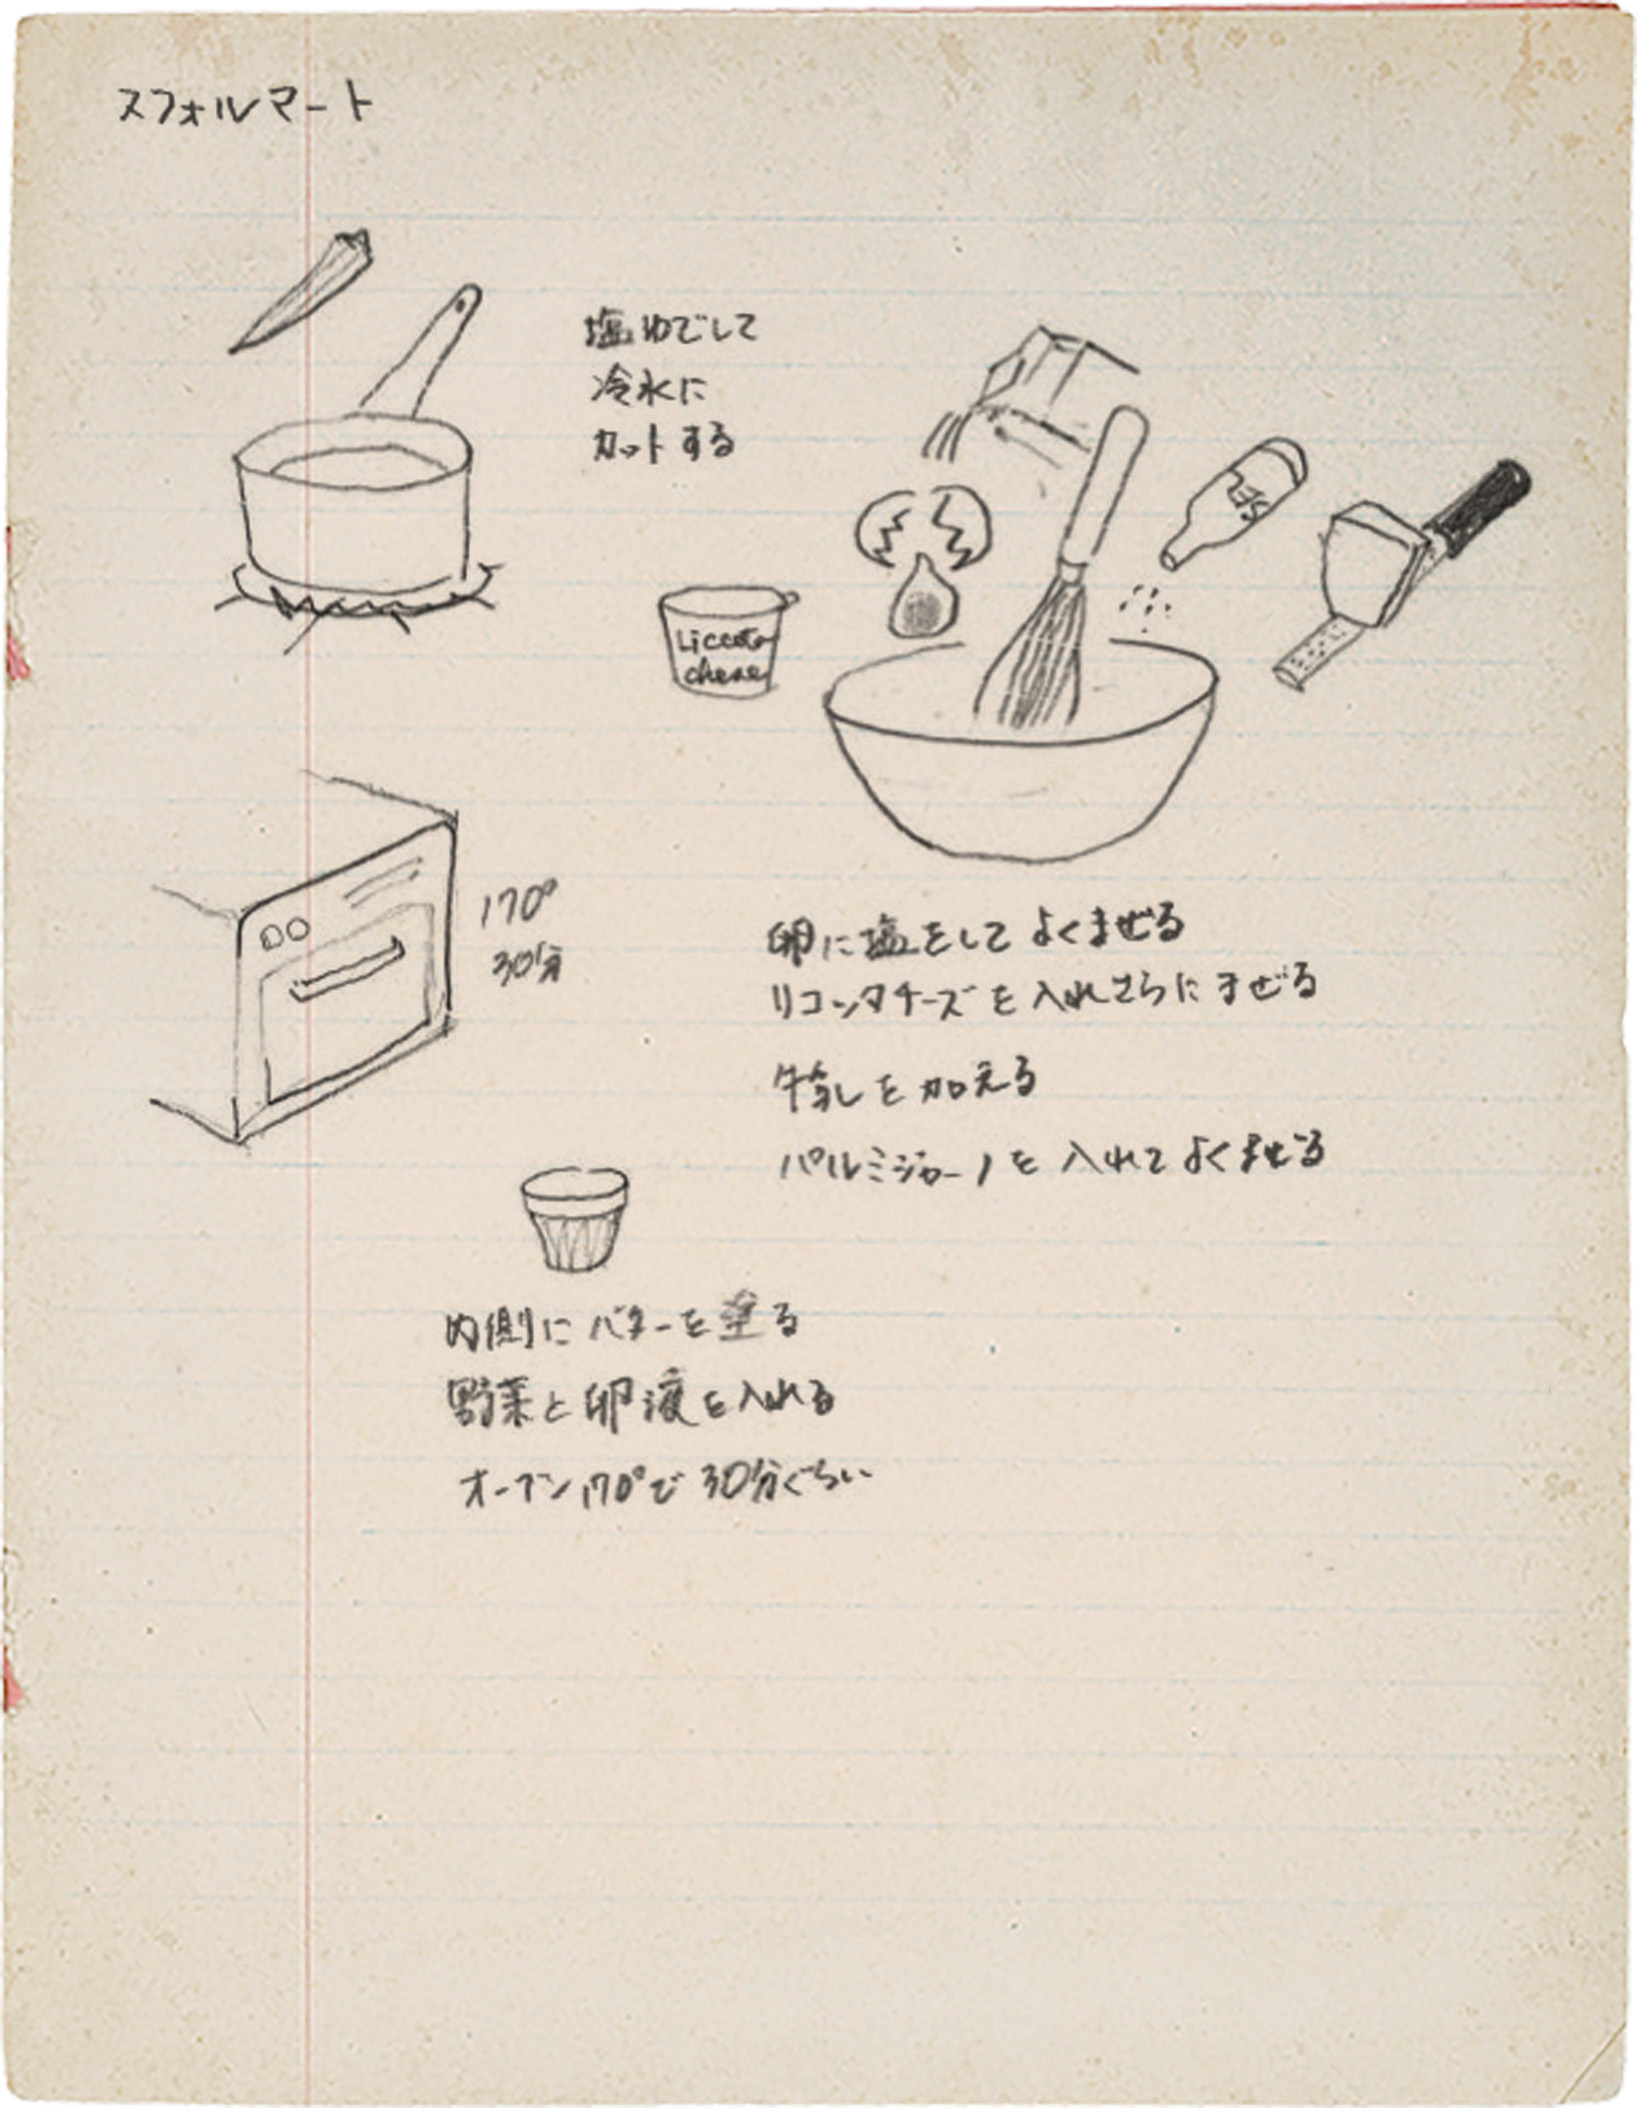 スフォルマート
塩ゆでして
冷水に
カットする
SEL
Liccota
chese
170°
30分
卵に塩をして よくまぜる
リコッタチーズを入れさらにまぜる
牛乳を加える
パルミジャーノを入れてよくまぜる
内側にバターを塗る
野菜と卵液を入れる
オーブン170°で30分ぐらい